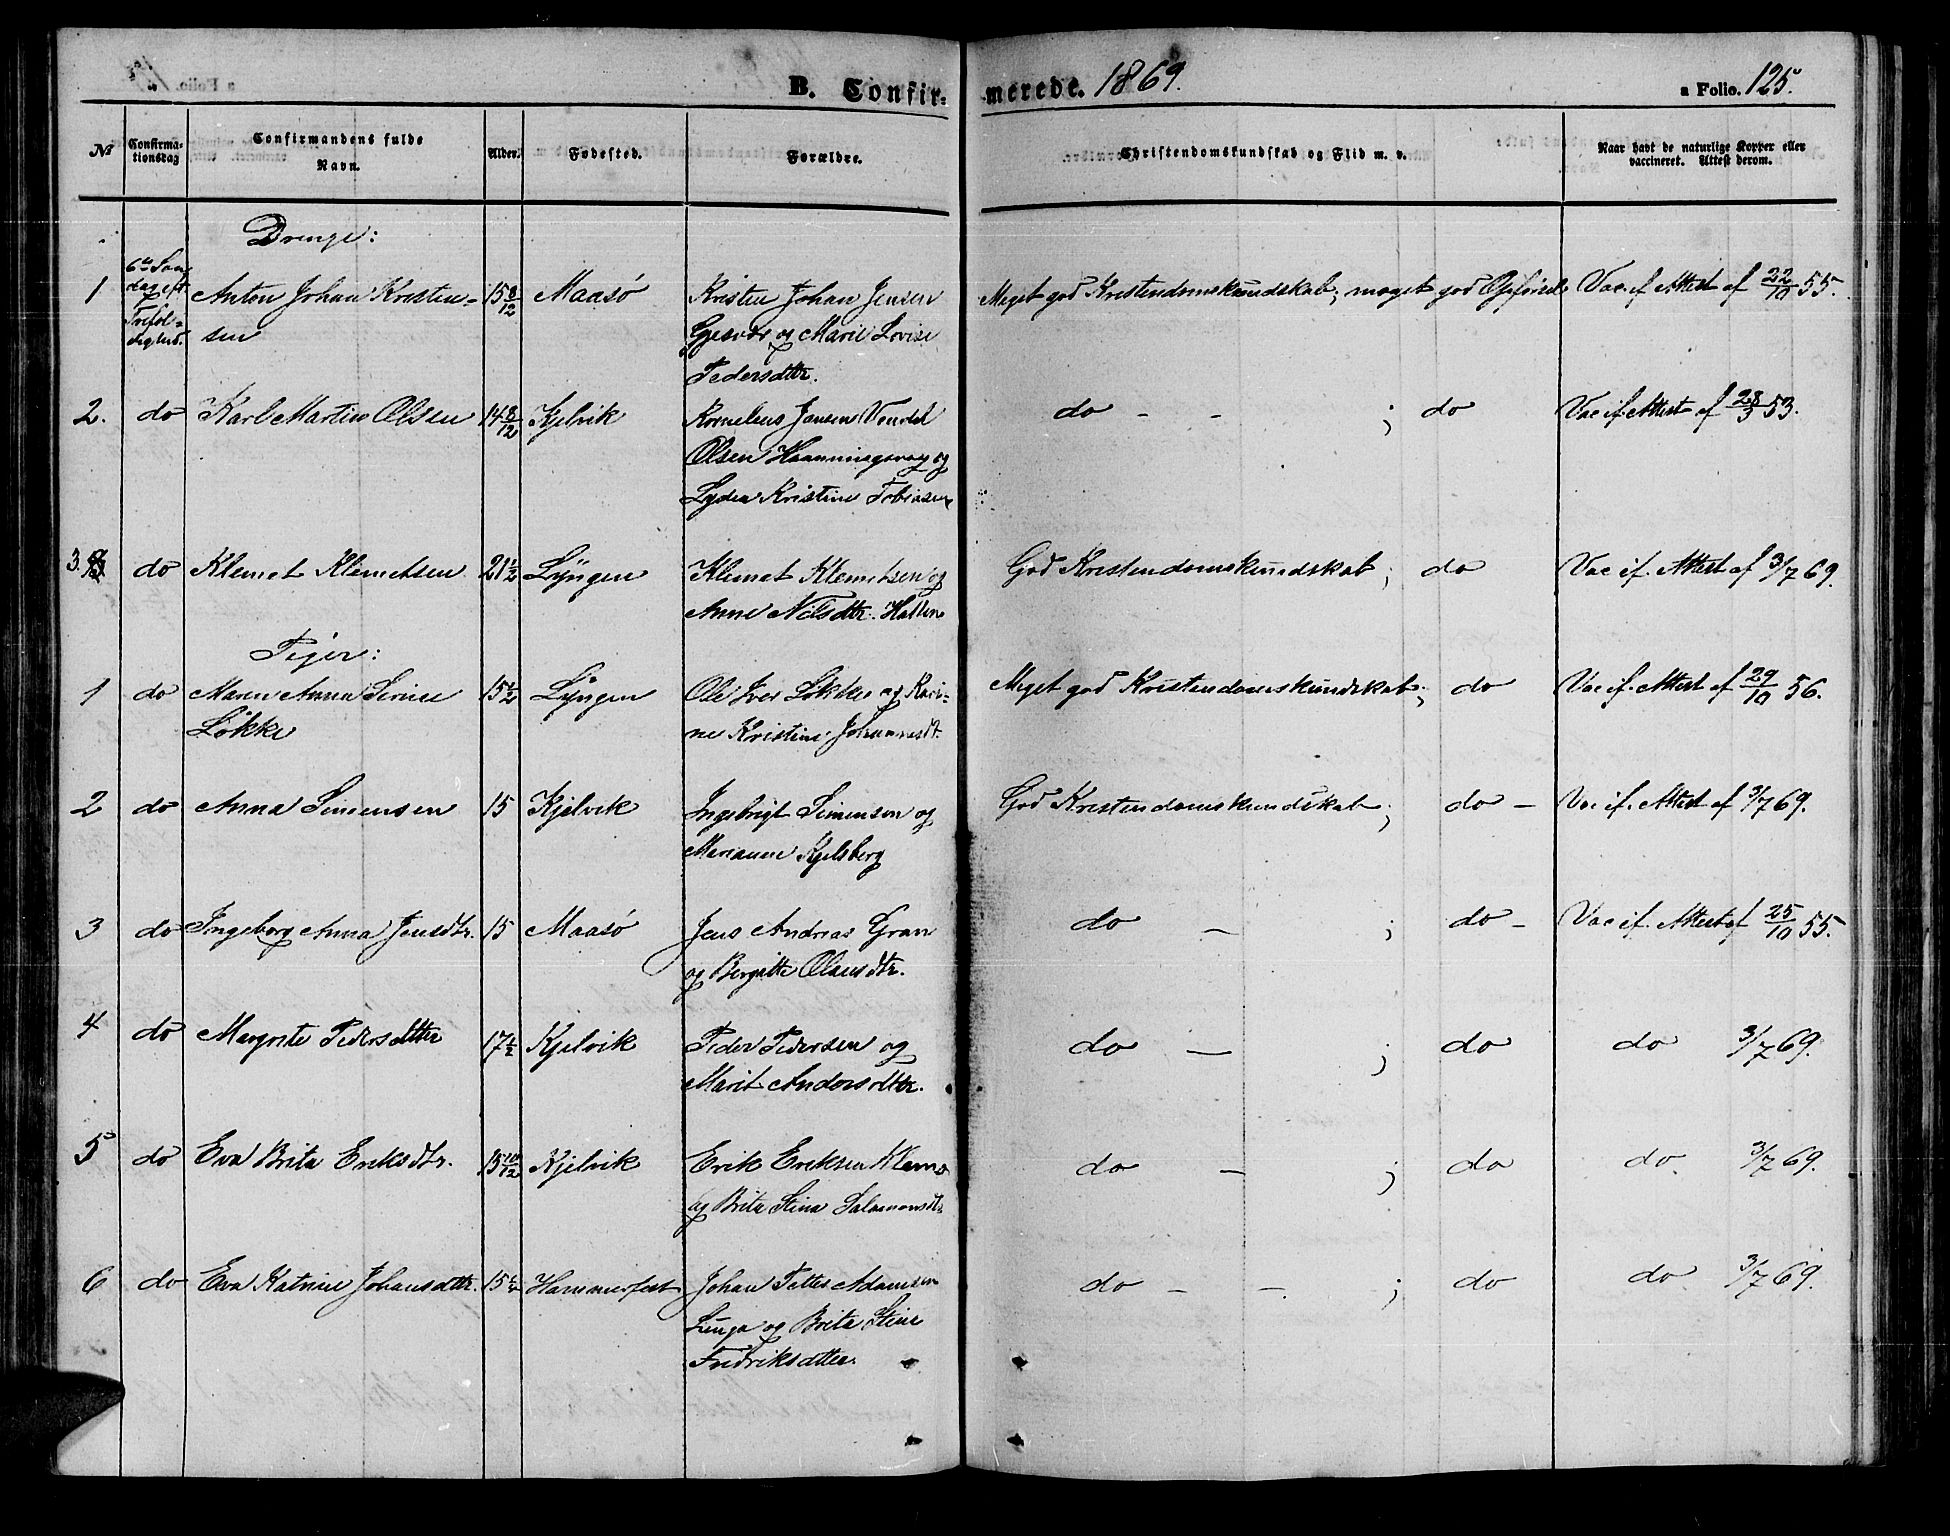 B. Confirmerede. 1869. a Folio. 125.
№ Confirmationsdag Confirmandens fulde Navn. Alder. Fødested. Forældre. Christendomskundskab og Flid m. v. Naar havt de naturlige Kopper eller vaccineret. Attest derom.
Drenge:
1 6te Søndag eft. Trefoldighed. Anton Johan Kristensen 15 8/12 Maasø Kristen Johan Jensen Gjesvær og Marie Lovise Pedersdttr. Meget god Kristendomskundskab; meget god Opførsel Vac. if. Attest af 22/10 55.
2. do Karl Martin Olsen 14 8/12 Kjelvik Kornelius Jansen Olsen Honningsvaag og Lydia Kristine Tobiasen do - - ; do Vac if. Attest af 28/3 53.
3. do Klemet Klemetsen 21 1/2 Lyngen Klemet Klemetsen og Anne Nilsdtr. God Kristendomskundskab; do Vac if. Attest af 3/7 69.
Piger:
1 do Maren Anna Serine Løkke 15 1/2 Lyngen Ole Iver Løkke og Karine Kristine Johannesdt. Meget god Kristendomskundskab; do Vac if. Attest af 29/10 56.
2 do Anna Simensen 15 Kjelvik Ingebrigt Simensen og Marianne Kjelsberg God Kristendomskundskab; do - Vac if. Attest af 3/7 69.
3 do Ingeborg Anna Jensdtr. 15 Maasø Jens Andreas Gran og Bergitte Olausdtr. do - ; do - Vac if. Attest af 25/10 55.
4 do Margrete Pedersdtter 17 1/2 Kjelvik Peder Pedersen og Marit Andersdtter. do - ; do do 3/7 69.
5 do Eva Brita Eriksdtr. 15 10/12 Kjelvik Erik Eriksen Klemo og Brita Stina Salamonsdtr do - ; do do. 3/7 69.
6 do Eva Katrine Johansdttr. 15 1/2 Hammerfest Johan Petter Adamsen og Brita Stine Fredriksdtter. do - - ; do do. 3/7 69.